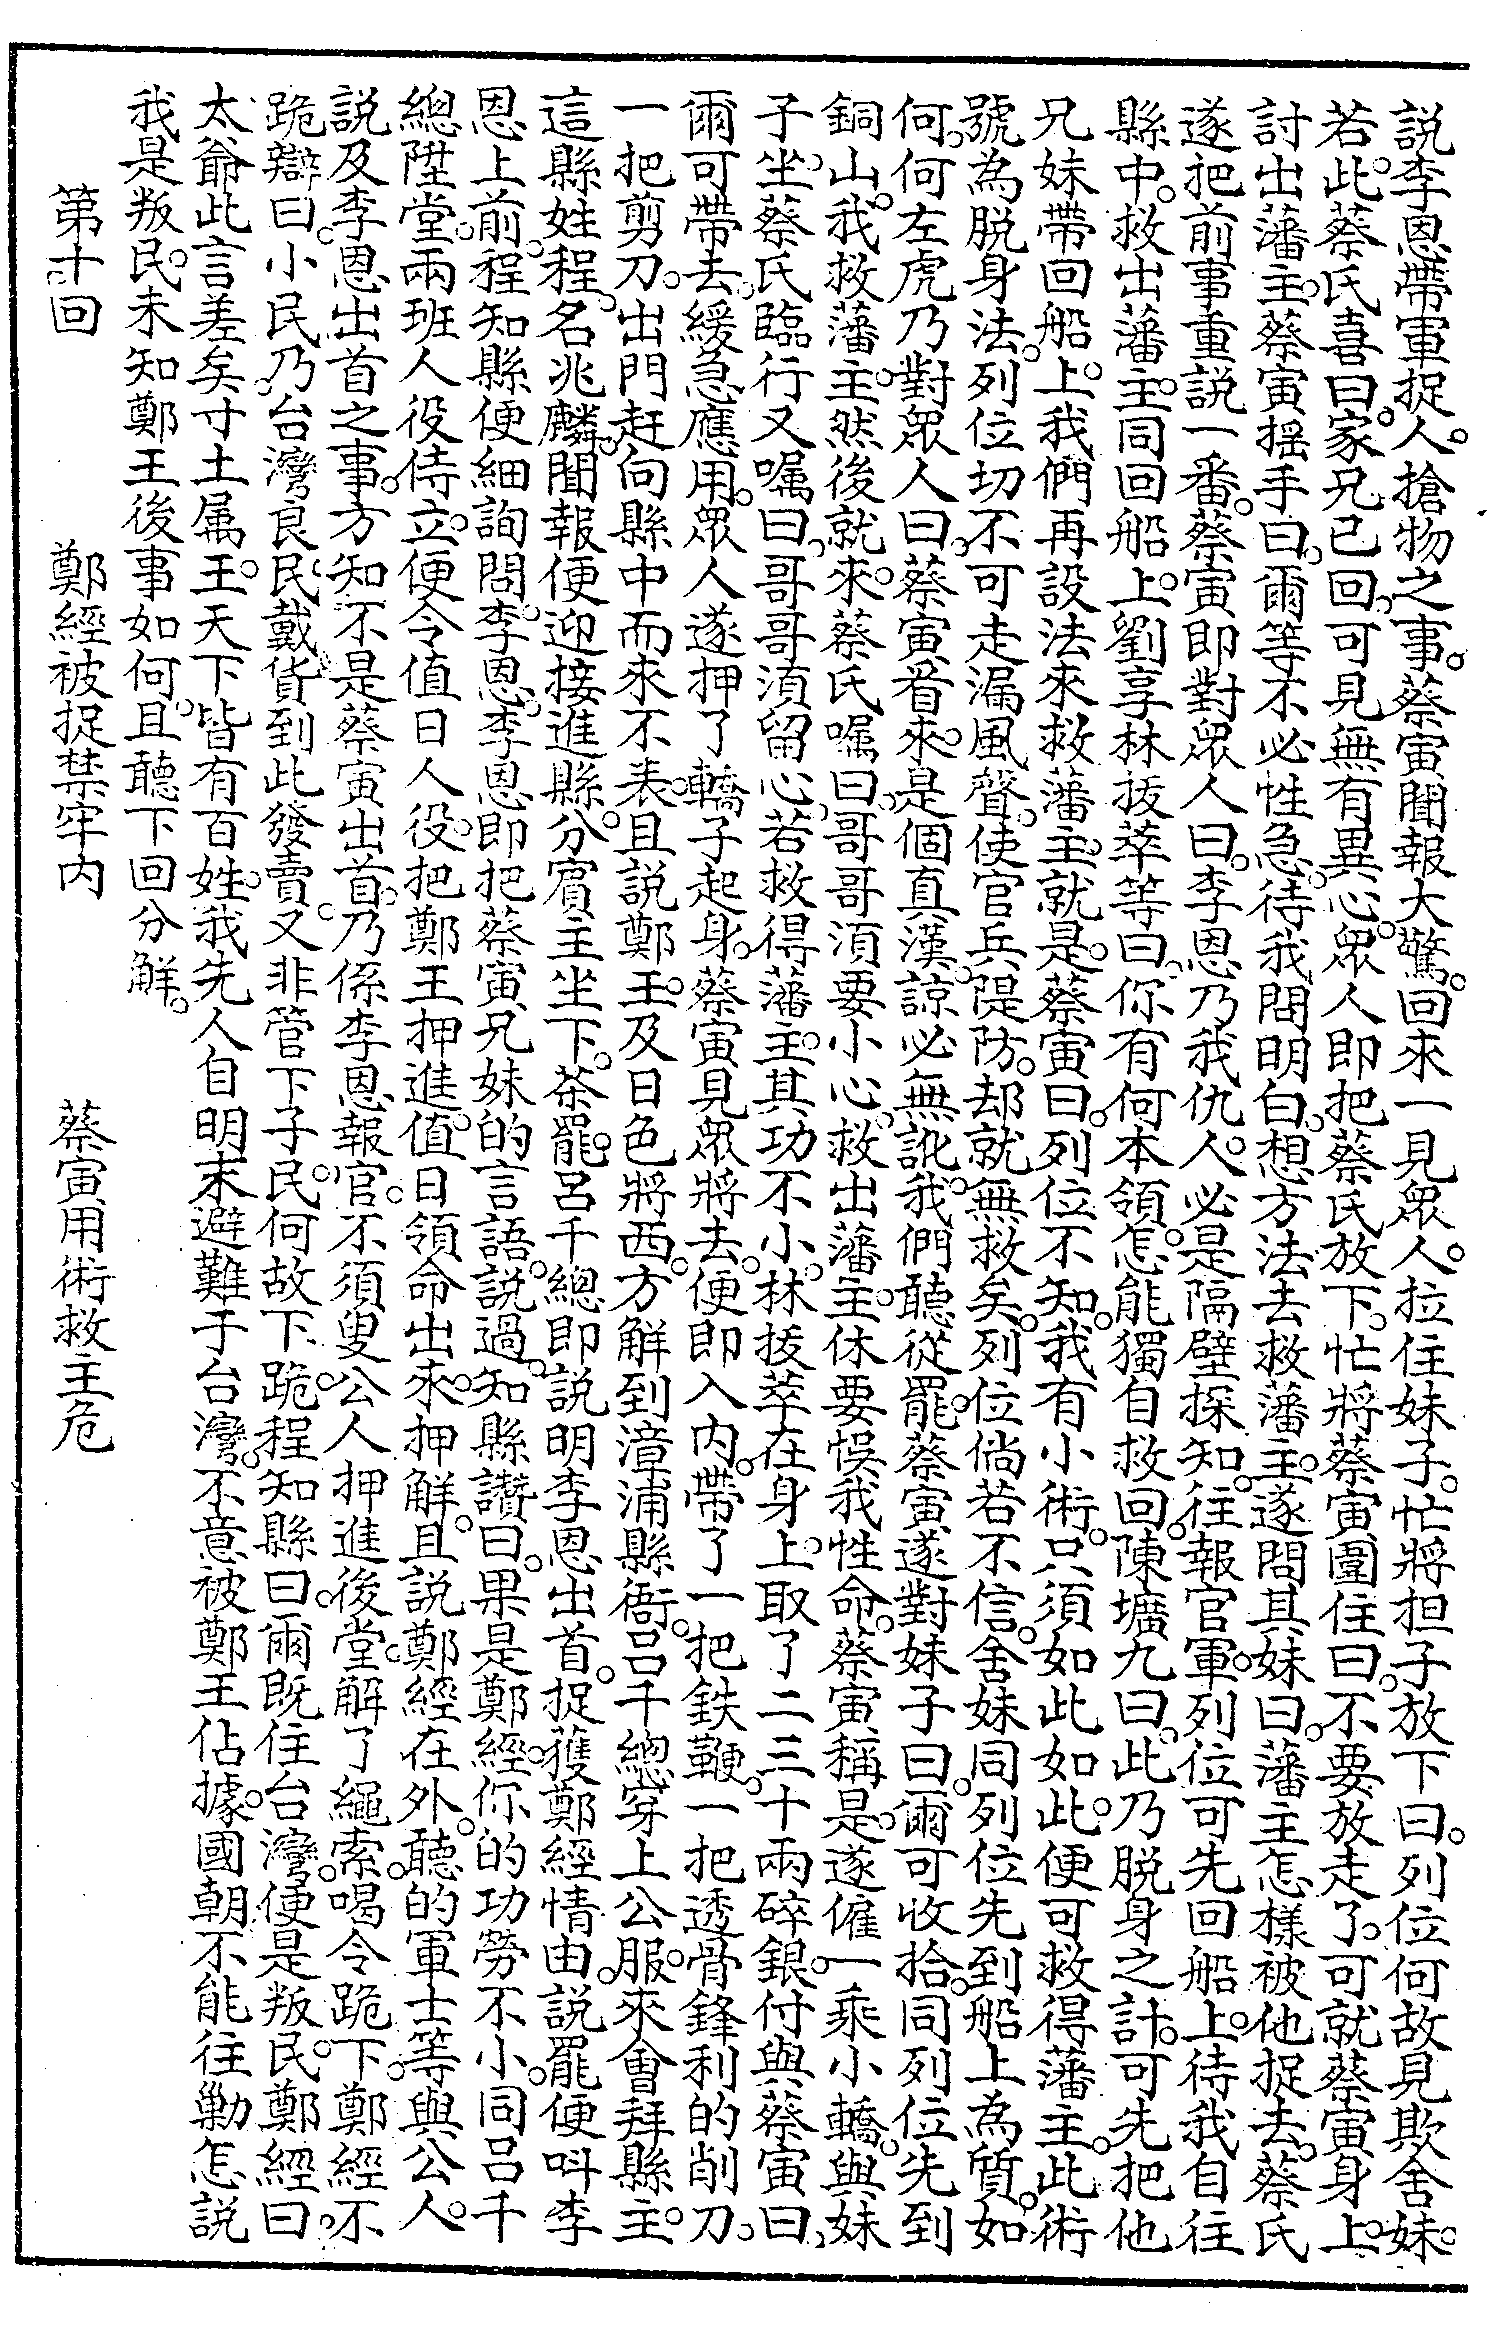 説李恩帶軍捉人。搶物之事。蔡寅聞報大驚。回來一見眾人。拉住妹子。忙將担子放下曰。列位何故見欺舍妹。
若此。蔡氏喜曰。家兄已回。可見無有異心。眾人即把蔡氏放下。忙將蔡寅圍住曰。不要放走了。可就蔡寅身上。
討出藩主。蔡寅搖手曰。爾等不必性急。待我問明白。想方法去救藩主。遂問其妹曰。藩主怎樣被他捉去。蔡氏
遂把前事重説一番。蔡寅即對眾人曰。李恩乃我仇人。必是隔壁探知。往報官軍。列位可先回船上。待我自往
縣中。救出藩主。同回船上。劉享林拔萃等曰。你有何本領。怎能獨自救回。陳壙九曰。此乃脱身之計。可先把他
兄妹帶回船上。我們再設法來救藩主。就是。蔡寅曰。列位不知。我有小術。只須如此如此。便可救得藩主。此術
號為脱身法。列位切不可走漏風聲。使官兵隄防。却就無救矣。列位倘若不信。舍妹同列位先到船上為質。如
何。何左虎乃對眾人曰。蔡寅看來。是個真漢。諒必無訛。我們聽從罷。蔡寅遂對妹子曰。爾可收拾。同列位先到
銅山。我救藩主。然後就來。蔡氏囑曰。哥哥須要小心。救出藩主。休要悞我性命。蔡寅稱是。遂僱一乘小轎。與妹
子坐。蔡氏臨行又囑曰。哥哥須留心。若救得藩主。其功不小。林拔萃在身上。取了二三十兩碎銀。付與蔡寅曰。
爾可帶去。緩急應用。眾人遂押了轎子起身。蔡寅見眾將去。便即入内。帶了一把鉄鞭。一把透骨鋒利的削刀。
一把剪刀。出門赶向縣中而來不表。且説鄭王。及日色將西。方解到漳浦縣衙。呂千總穿上公服。來會拜縣主。
這縣姓程。名兆麟。聞報便迎接進縣。分賓主坐下。茶罷。呂千總即説明李恩出首。捉獲鄭經情由。説罷便呌李
恩上前。程知縣便細詢問。李恩。李恩即把蔡寅兄妹的言語。説過。知縣讚曰。果是鄭經。你的功勞不小。同呂千
總陞堂。兩班人役侍立。便令值日人役。把鄭王押進。值日領命出來。押解。且説鄭經在外。聽的軍士等。與公人。
説及李恩出首之事。方知不是蔡寅出首。乃係李恩報官。不須叟公人押進後堂。解了繩索。喝令跪下。鄭經不
跪。辯曰。小民乃台灣良民。戴貨到此發賣。又非管下子民。何故下跪。程知縣曰。爾既住台灣。便是叛民。鄭經曰。
太爺此言差矣。寸土属王。天下皆有百姓。我先人自明末避難于台灣。不意被鄭王佔據。國朝不能往勦。怎説
我是叛民。未知鄭王後事如何。且聽下回分解。
第十回　鄭經被捉禁牢内　蔡寅用術救主危